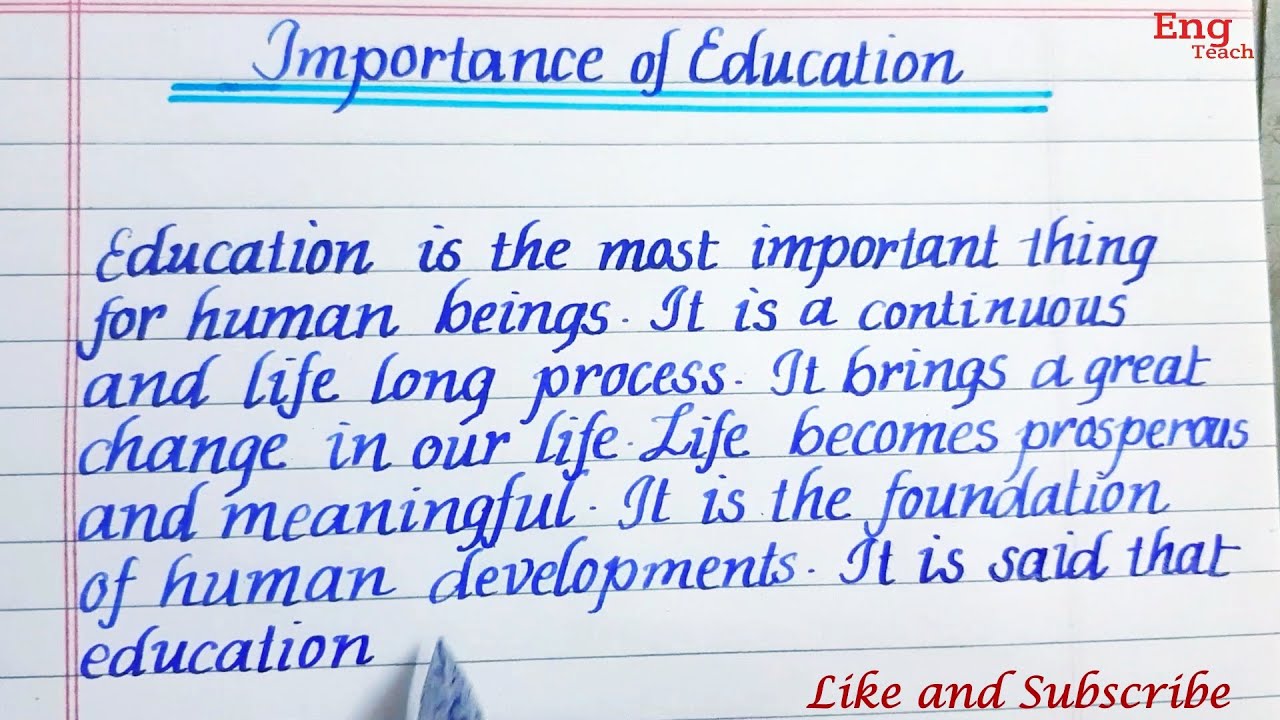 Eng
Teach
Importance of Education
Education is the most important thing
for human beings. It is a continuous
and life long process. It brings a great
change in our life. Life becomes prosperous
and meaningful. It is the foundation
of human developments. It is said that
education
Like and Subscribe